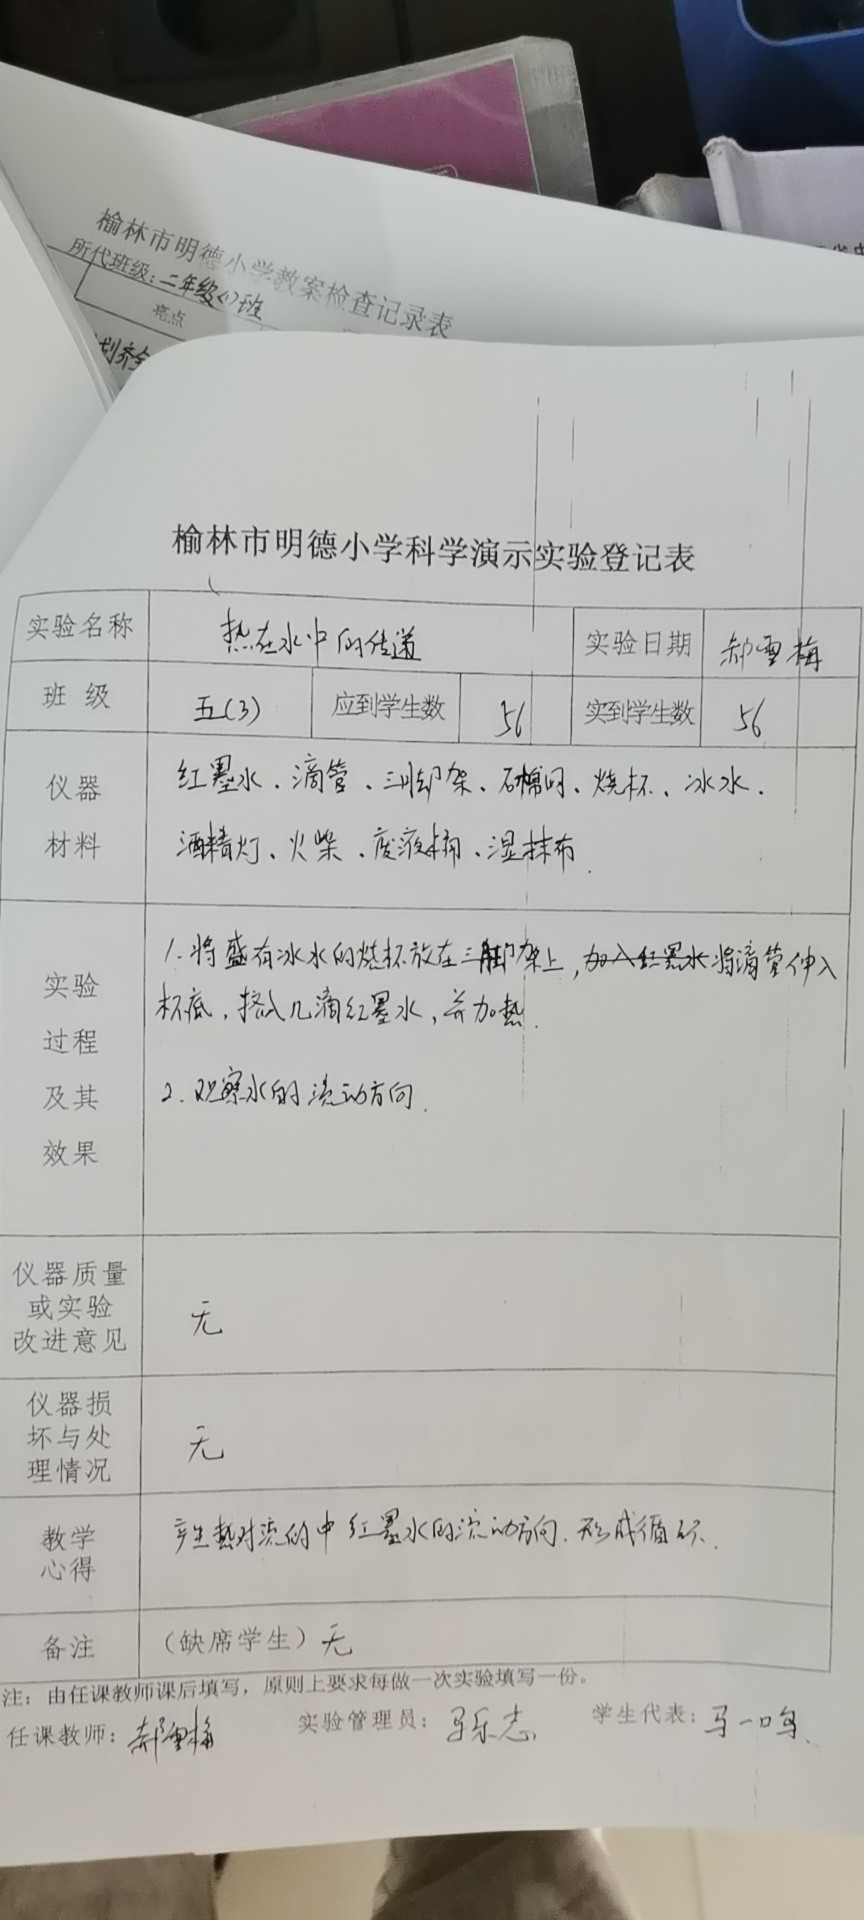 榆林市明德小学教案检查记录表
所代班级：二年级(1)班
亮点
划齐全
榆林市明德小学科学演示实验登记表
实验名称 热在水中的传递 实验日期 郝雪梅
班 级 五(3) 应到学生数 56 实到学生数 56
仪器 红墨水、滴管、三脚架、石棉网、烧杯、冰水、
材料 酒精灯、火柴、废液桶、湿抹布.
1.将盛有冰水的烧杯放在三脚架上，加入红墨水将滴管伸入
实验
杯底，挤入几滴红墨水，并加热.
过程
及其 2.观察水的流动方向.
效果
仪器质量
或实验 无
改进意见
仪器损
坏与处 无
理情况
教学 产生热对流的中红墨水的流动方向.形成循环.
心得
备注 （缺席学生）无
注：由任课教师课后填写，原则上要求每做一次实验填写一份。
任课教师：郝雪梅 实验管理员：马乐志 学生代表：马一鸣